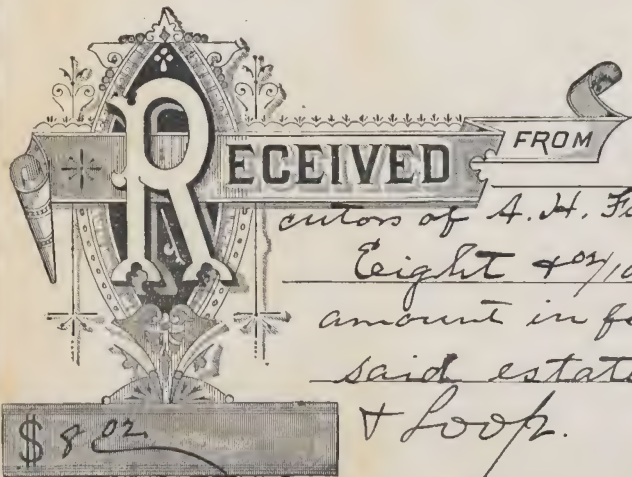 RECEIVED FROM
cutors of A. H.
Eight & 02/10
amount in f
said estate
$ 8 02
& Loop.